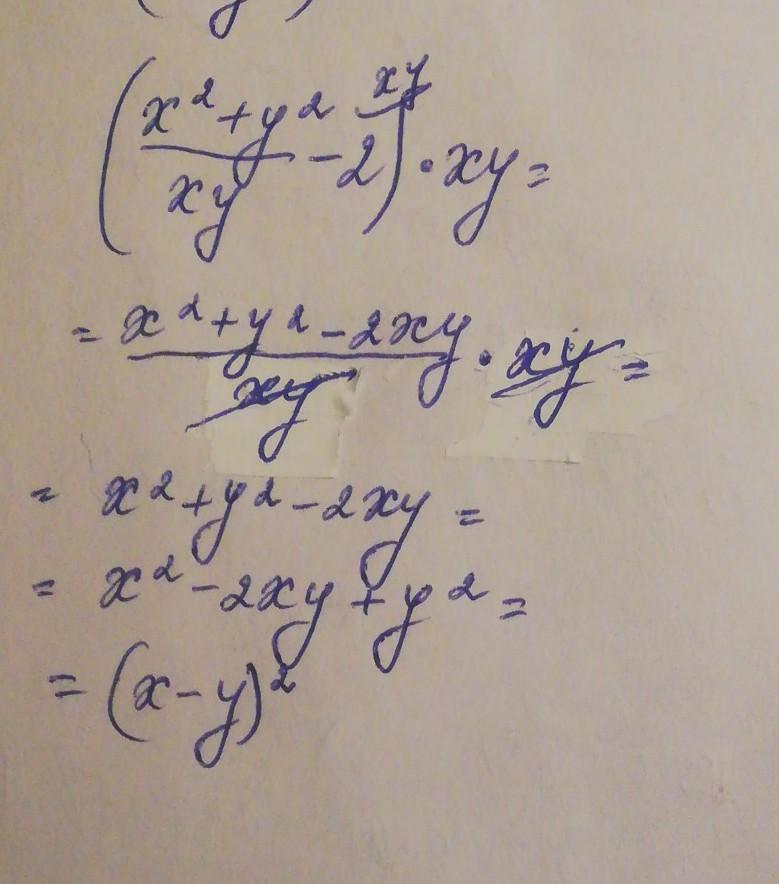 (x²+y²/xy - 2^xy) · xy =
= x²+y²-2xy/xy · xy =
= x²+y²-2xy =
= x²-2xy+y² =
= (x-y)²